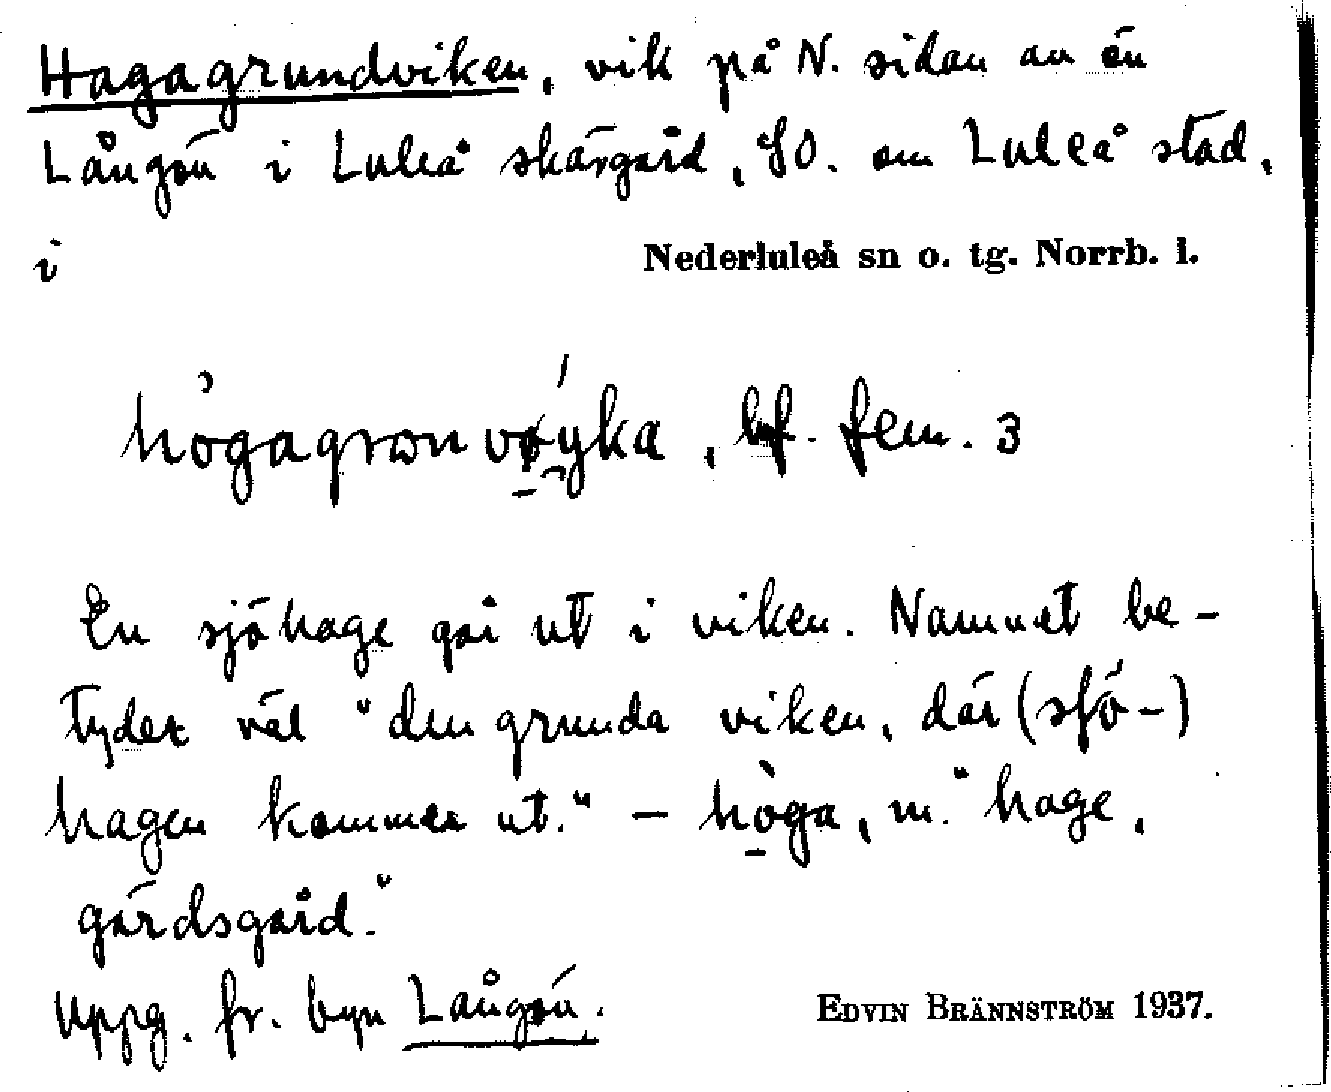 Hagagrundviken, vik på N. sidan av ön
Långön i Luleå skärgård, SO. om Luleå stad,
i Nederluleå sn o. tg. Norrb. l.
högagrɷnvøyka, bf. fem. 3
En sjöhage går ut i viken. Namnet be-
tyder väl "den grunda viken, där (sjö-)
hagen kommer ut." – hòga, m. "hage,
gärdsgård."
Uppg. fr. byn Långön.
EDVIN BRÄNNSTRÖM 1937.